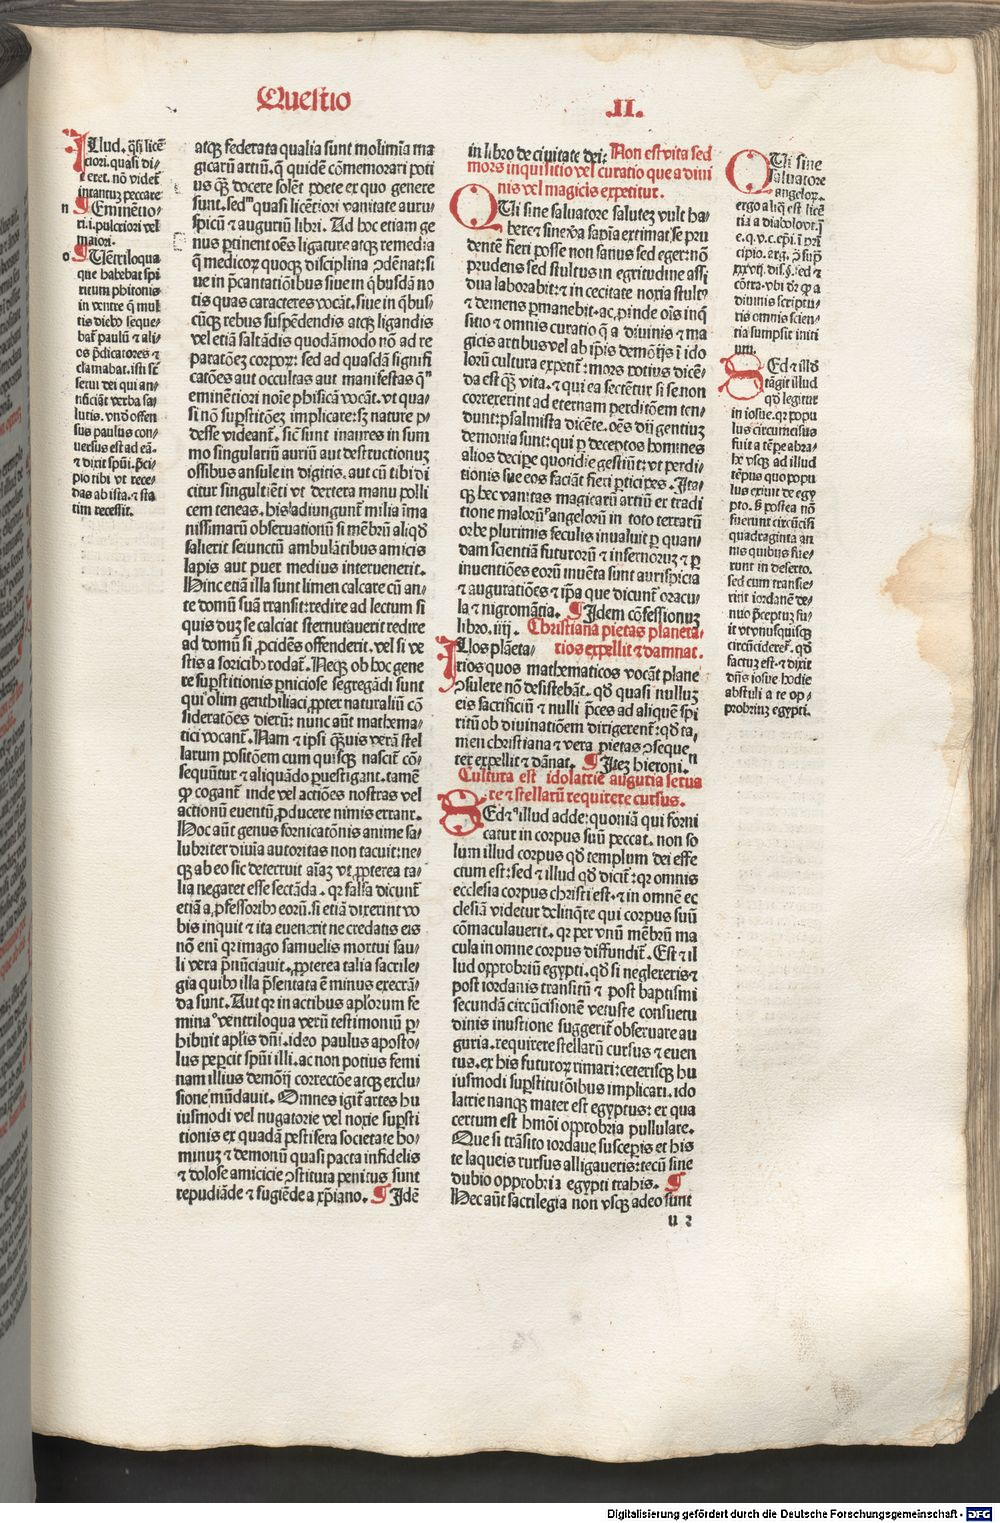 Questio
.II.
Illud. q̄si licē
ciori. quasi di-
ceret. nō videt̄
intantuȝ peccare
n ¶ Eminētio-
ri. i. pulcriori vel
maiori.
o ¶ Uētriloqua
que habebat spi
ritum phitonis
in ventre q̄ mul
tis dieb⁹ seque-
bat̄ paulū ⁊ ali-
os p̄dicatores ⁊
clamabat. isti st̄
serui dei qui an-
nūciāt verba sa-
lutis. vnd̓ offen
sus paulus con-
uersus est ad eā.
⁊ dixit spūi. p̄ci-
pio tibi vt rece-
das ab ista. ⁊ sta
tim recessit.
atqȝ federata qualia sunt molimīa ma
gicarū artiū. q̄ quidē cōmemorari poti
us q̄ȝ docere solēt poete ex quo genere
sunt. sed ᵐ quasi licētiori vanitate auru-
spicū ⁊ auguriū libri. Ad hoc etiam ge
nus ꝑtinent oēs ligature atqȝ remedia
q̄ medicoꝝ quoqȝ disciplina ↄdēnat: si
ue in p̄cantatiōibus siue in q̄busdā no
tis quas caracteres vocāt. siue in q̄bus-
cūqȝ rebus suspēdendis atqȝ ligandis
vel etiā saltādis quodāmodo nō ad tē
paratōeȝ corpoꝝ: sed ad quasdā signifi
catōes aut occultas aut manifestas q̄ ⁿ
eminētiori noīe phisicā vocāt. vt qua-
si nō suꝑstitōeȝ implicare: sȝ nature ꝓ-
desse videant̄. sic̄ sunt inaures in sum
mo singulariū auriū aut destructionuȝ
ossibus ansule in digitis. aut cū tibi di
citur singultiēti vt dextera manu polli
cem teneas. his adiungunt̄ milia īma
nissimarū obseruationū si mēbrū aliqd̓
salierit seiunctū ambulātibus amicis
lapis aut puer medius interuenerit.
Hinc etiā illa sunt limen calcare cū an-
te domū suā transit: redire ad lectum si
quis duȝ se calciat sternutauerit redire
ad domū si ꝓcidēs offenderit. vel si ve-
stis a soricib⁹ rodat̄. Neqȝ ob hoc gene
re suꝑstitionis ꝑniciose segregādi sunt
qui olim genthiliaci ꝓpter naturaliū cō
sideratōes dierū: nunc aūt mathema-
tici vocant̄. Nam ⁊ ipsi q̄ȝuis verā stel
larum positōem cum quisqȝ nascit̄ cō-
sequūtur ⁊ aliquādo ꝑuestigant. tamē
ꝙ cogant̄ inde vel actiōes nostras vel
actionū euentū ꝓducere nimis errant.
Hoc aūt genus fornicatōnis anime sa-
lubriter diuia autoritas non tacuit: ne-
qȝ ab eo sic deterruit aīaȝ vt ꝓpterea ta-
lia negaret esse sectāda. qꝛ falsa dicunt̄
etiā a ꝓfessorib⁹ eorū. si etiā dixerint vo
bis inquit ⁊ ita euenerit ne credatis eis
nō enī qꝛ imago samuelis mortui sau-
li vera p̄nūciauit. ꝓpterea talia sacrile-
gia quib⁹ illa p̄sentata ē minus execrā-
da sunt. Aut qꝛ in actibus aplorum fe
mina °ventriloqua verū testimoniū ꝑ-
hibuit aplis dn̄i. ideo paulus aposto-
lus peꝑcit spūi illi. ac non potius femi
nam illius demōij correctōe atqȝ exclu-
sione mūdauit. Omnes igit̄ artes hu
iusmodi vel nugatorie vel noxie suꝑsti
tionis ex quadā pestifera societate ho-
minuȝ ⁊ demonū quasi pacta infidelis
⁊ dolose amicicie ↄstituta penitus sunt
repudiāde ⁊ fugiēde a xp̄iano. ¶ Idē
in libro de ciuitate dei: Non est vita sed
mors inquisitio vel curatio que a diui
nis vel magicis expetitur.
Qui sine saluatore saluteȝ vult ha-
bere ⁊ sine ꝟa sapīa extimat se pru
dentē fieri posse non saluus sed eger: nō
prudens sed stultus in egritudine assi
dua laborabit: ⁊ in cecitate noxia stult⁹
⁊ demens ꝑmanebit. ac ꝓinde oīs inq̄
sitio ⁊ omnis curatio q̄ a diuinis ⁊ ma
gicis artibus vel ab ip̄is demōijs ī ido
lorū cultura expetit̄: mors potius dicē-
da est q̄ȝ vita. ⁊ qui ea sectētur si se non
correxerint ad eternam perditōem ten-
dunt: psalmista dicēte. oēs dij gentiuȝ
demonia sunt: qui ꝑ deceptos homines
alios deciꝑe quotidie gestiūt: vt perdi-
tionis sue eos faciāt fieri ꝑticipes. Ista-
qȝ hec vanitas magicarū artiū ex tradi
tione malorū ᵖ angelorū in toto terrarū
orbe plurimis seculis inualuit ꝑ quan-
dam scientiā futurorū ⁊ infernoruȝ ⁊ ꝑ
inuentiōes eorū inuēta sunt auruspicia
⁊ auguratiōes ⁊ ip̄a que dicunt̄ oracu-
la ⁊ nigromātia. ¶ Idem cōfessionuȝ
libro. iiij. Christiana pietas planeta-
rios expellit ⁊ damnat.
Illos plāeta-
rios quos mathematicos vocāt plane
ↄsulere nō desistebāt. qd̓ quasi nulluȝ
eis sacrificiū ⁊ nulli p̄ces ad aliquē spi
ritū ob diuinatiōem dirigerent̄: qd̓ ta-
men christiana ⁊ vera pietas ↄseque ⁿ
ter expellit ⁊ dānat. ¶ Iteȝ hieroni.
Cultura est idolatrie auguria serua
re ⁊ stellarū requirere cursus.
Sed ⁊ �q illud adde: quoniā qui forni
catur in corpus suū peccat. non so
lum illud corpus qd̓ templum dei effe
ctum est: sed ⁊ illud qd̓ dicit̄: qꝛ omnis
ecclesia corpus christi est. ⁊ in omnē ec
clesiā videtur delinq̄re qui corpus suū
cōmaculauerit. qꝛ per vnū mēbrū ma
cula in omne corpus diffundit̄. Est ⁊ il
lud opprobriū egypti. qd̓ si neglexeris ⁊
post iordanis transitū ⁊ post baptismi
secundā circūcisionē vetuste consuetu
dinis inustione suggerit̄ obseruare au
guria. requirere stellarū cursus ⁊ euen
tus. ex his futuroꝝ rimari: ceterisqȝ hu
iusmodi suꝑstitutōibus implicari. ido
latrie nanqȝ mater est egyptus: ex qua
certum est hm̄oi opprobria pullulare.
Que si trāsito iordane susceperis et his
te laqueis rursus alligaueris: tecū sine
dubio opprobria egypti trahis. ¶
Hec aūt sacrilegia non vsqȝ adeo sunt
u 2
Qui sine
saluatore
angeloꝝ.
ergo aliq̄ est licē
tia a diabolo vt j̄
e. q. v. c. ep̄i. ī pri
cipio. arg. ꝯ̄ sup̄
xxxvij. dis. §. sed ⁊
cōtra. vbi dȝ ꝙ a
diuinis scriptu-
ris omnis scien-
tia sumpsit initi
um.
Sed ⁊ illd̓
tāgit illud
qd̓ legitur
in iosue. qꝛ popu
lus circumcisus
fuit a tēꝑe abra-
he vsqȝ ad illud
tēpus quo popu
lus exiuit de egy
pto. s̄ postea nō
fuerunt circūcisi
quadraginta an
nis quibus fue-
runt in deserto.
sed cum transie-
rint iordanē de-
nuo p̄ceptuȝ fu-
it vt vnusquisqȝ
circūcideret̄. qd̓
factuȝ est. ⁊ dixit
dn̄s iosue hodie
abstuli a te op-
probriuȝ egypti.
Digitalisierung gefördert durch die Deutsche Forschungsgemeinschaft - DFG